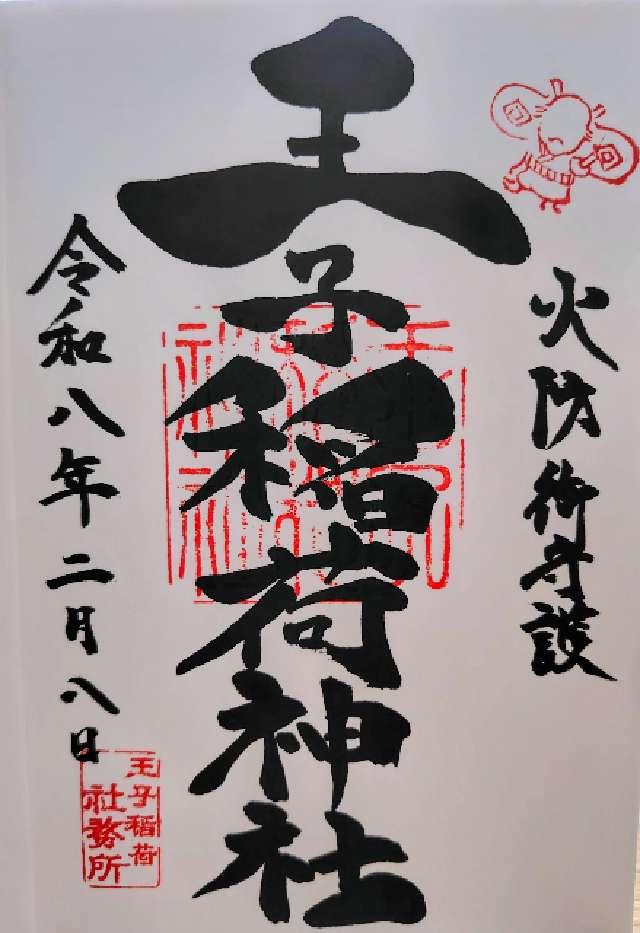 火防御守護
王子稲荷神社
令和八年二月八日
王子稲荷
社務所